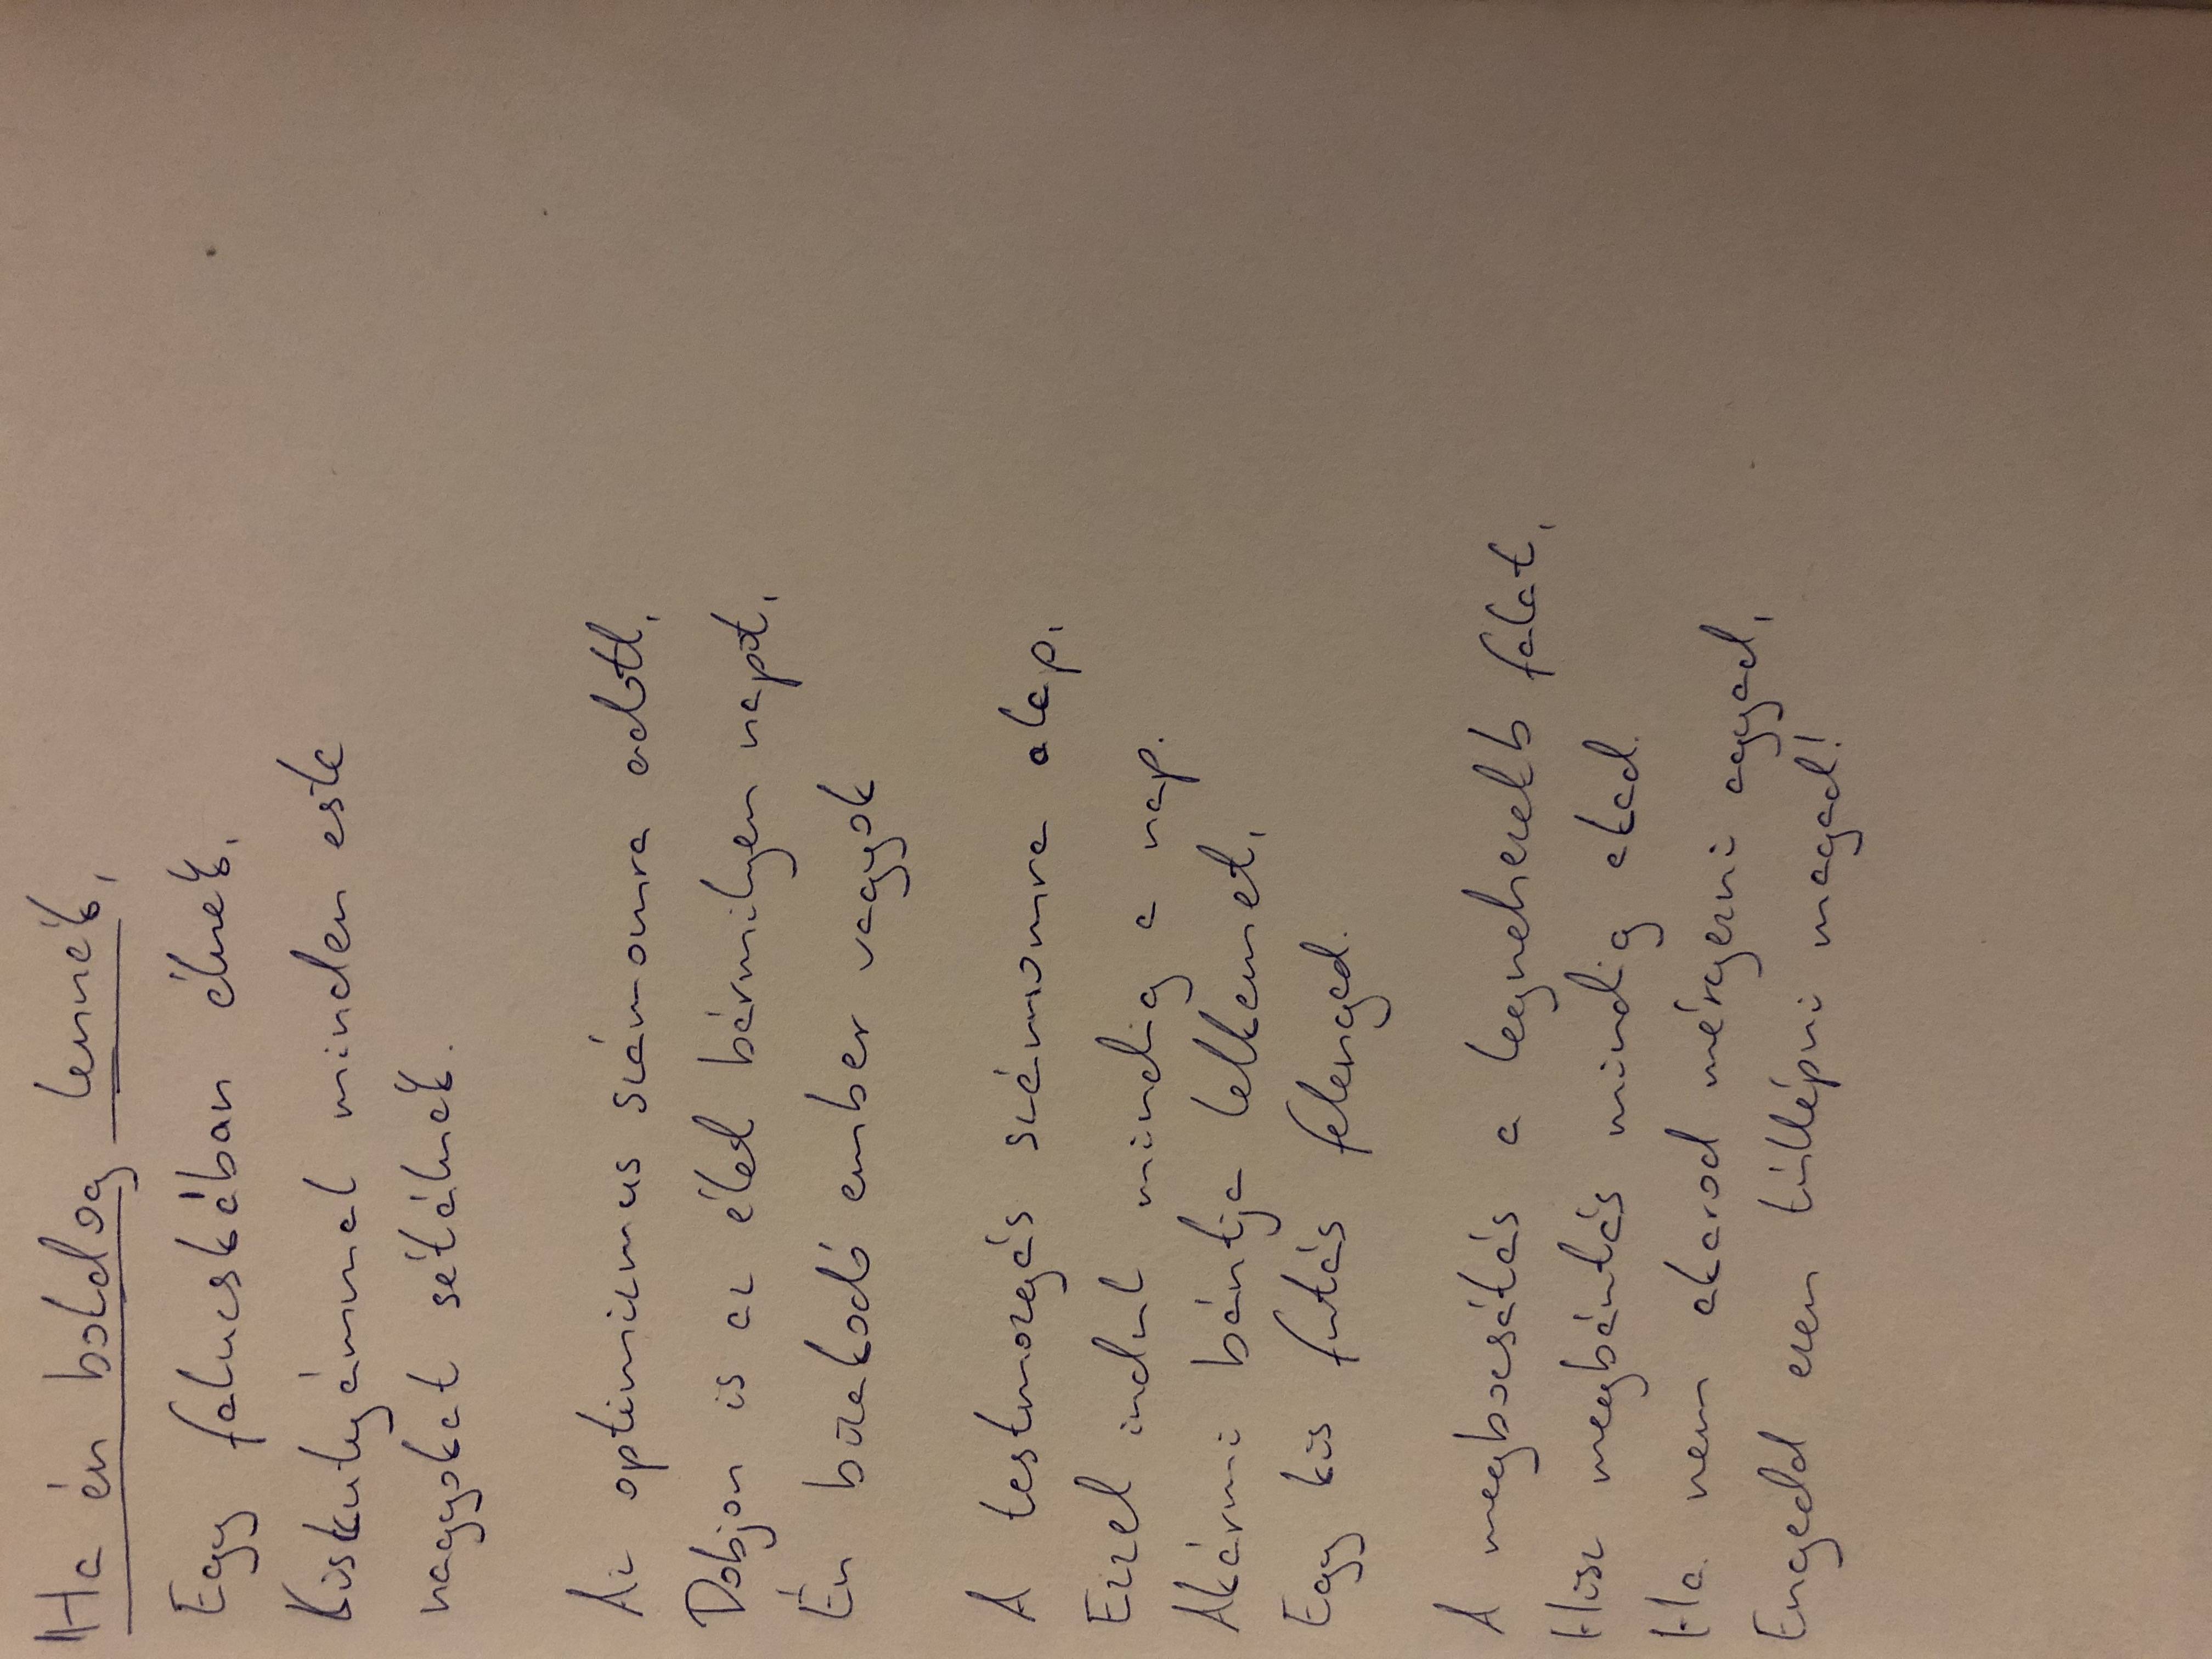 Ha én boldog lennék,
Egy falucskában élnék,
Kiskutyámmal minden este
nagyokat sétálnék.
Az optimizmus számomra adott,
Dobjon is az élet bármilyen napot,
Én bizakodó ember vagyok
A testmozgás számomra alap,
Ezzel indul mindig a nap.
Akármi bántja lelkemet,
Egy kis futás felenged.
A megbocsátás a legnehezebb falat,
Hisz megbántás mindig akad.
Ha nem akarod mérgezni agyad,
Engedd ezen túllépni magad!